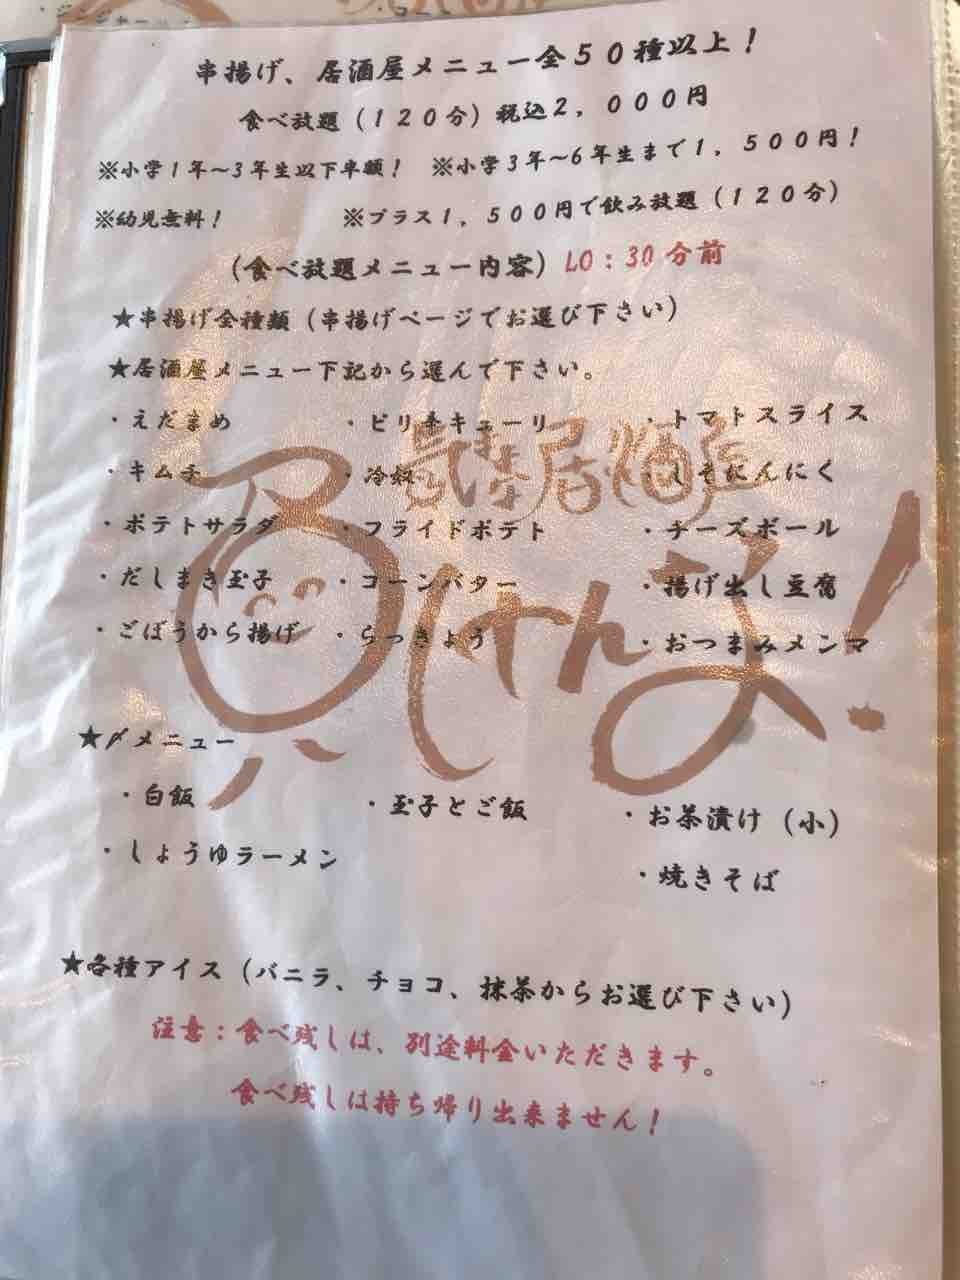 串揚げ、居酒屋メニュー全50種以上！
食べ放題（120分）税込2，000円
※小学1年～3年生以下半額！ ※小学3年～6年生まで1，500円！
※幼児無料！ ※プラス1，500円で飲み放題（120分）
（食べ放題メニュー内容）LO：30分前
★串揚げ全種類（串揚げページでお選び下さい）
★居酒屋メニュー下記から選んで下さい。
・えだまめ ・ピリ辛キューリ ・トマトスライス
・キムチ ・冷奴 ・しそにんにく
・ポテトサラダ ・フライドポテト ・チーズボール
・だしまき玉子 ・コーンバター ・揚げ出し豆腐
・ごぼうから揚げ ・らっきょう ・おつまみメンマ
居酒屋
★〆メニュー
・白飯 ・玉子とご飯 ・お茶漬け（小）
・しょうゆラーメン ・焼きそば
★各種アイス（バニラ、チョコ、抹茶からお選び下さい）
注意：食べ残しは、別途料金いただきます。
食べ残しは持ち帰り出来ません！